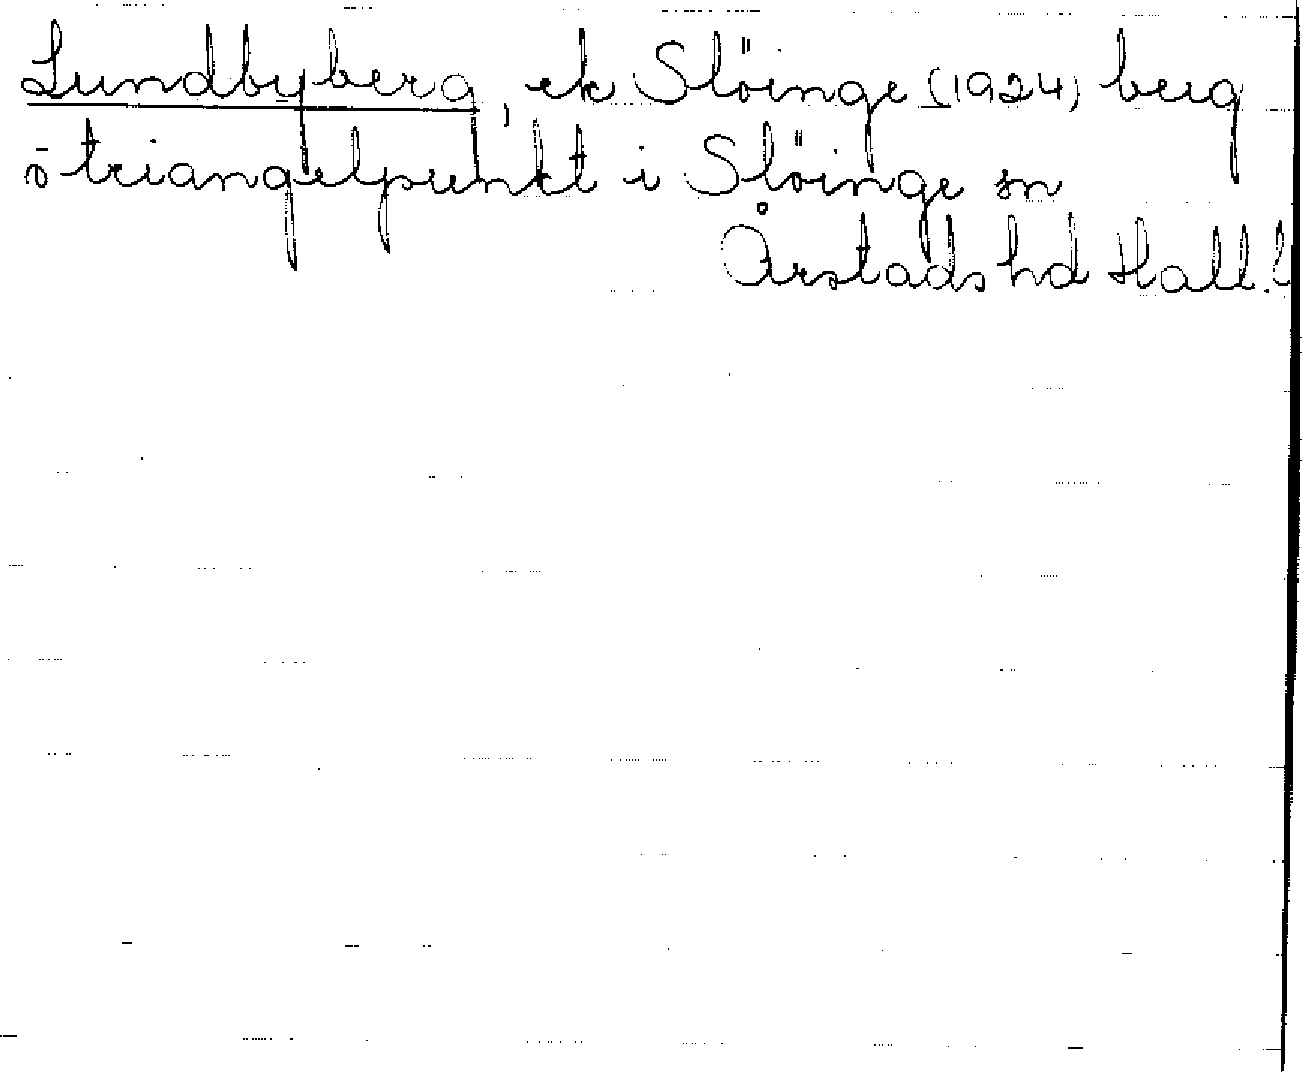 Lundbyberg, ek Slöinge (1924) berg
o triangelpunkt i Slöinge sn
Årstads hd Hall. l